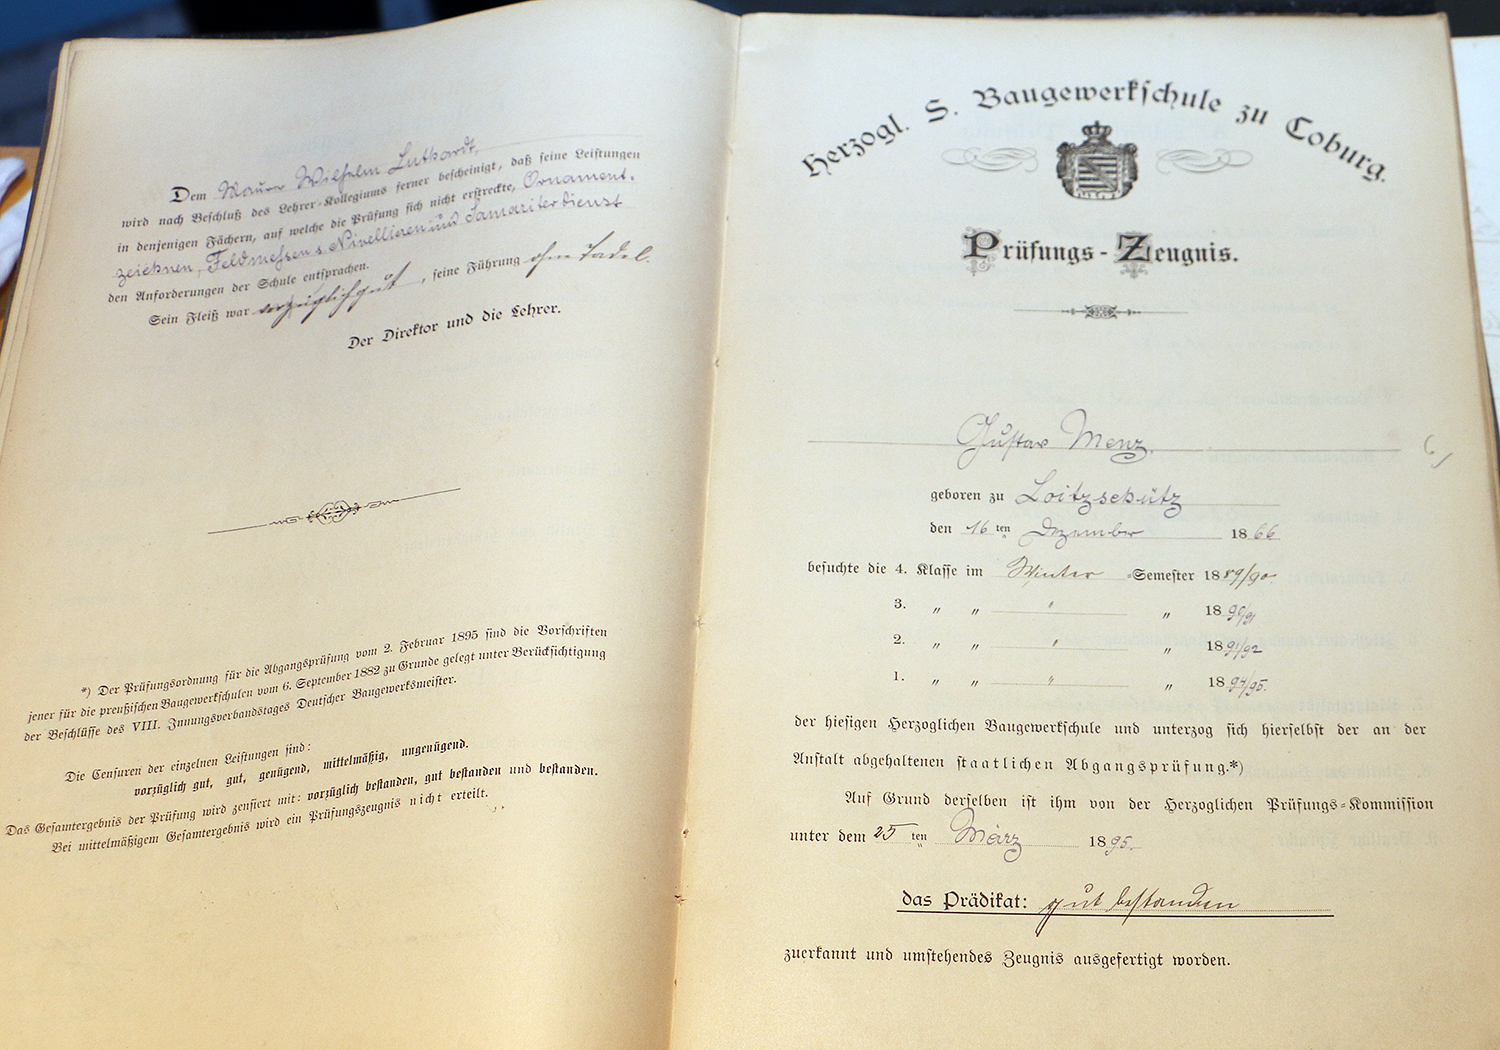 Dem Maurer Wilhelm Luthardt
wird nach Beschluß des Lehrer-Kollegiums ferner bescheinigt, daß seine Leistungen
in denjenigen Fächern, auf welche die Prüfung sich nicht erstreckte, Ornament-
zeichnen, Feldmessen & Nivellieren und Samariterdienst
den Anforderungen der Schule entsprachen.
Sein Fleiß war vorzüglich gut, seine Führung ohne Tadel.
Der Direktor und die Lehrer.
*) Der Prüfungsordnung für die Abgangsprüfung vom 2. Februar 1895 sind die Vorschriften
jener für die preußischen Baugewerkschulen vom 6. September 1882 zu Grunde gelegt unter Berücksichtigung
der Beschlüsse des VIII. Innungsverbandstages Deutscher Baugewerksmeister.
Die Censuren der einzelnen Leistungen sind:
vorzüglich gut, gut, genügend, mittelmäßig, ungenügend.
Das Gesamtergebnis der Prüfung wird zensiert mit: vorzüglich bestanden, gut bestanden und bestanden.
Bei mittelmäßigem Gesamtergebnis wird ein Prüfungszeugnis nicht erteilt.
Herzogl. S. Baugewerkschule zu Coburg.
Prüfungs-Zeugnis.
Gustav Menz
geboren zu Loitzschütz
den 16 ten Dezember 1866
besuchte die 4. Klasse im Winter-Semester 1889/90.
3. " " " " 1890/91
2. " " " " 1891/92
1. " " " " 1894/95.
der hiesigen Herzoglichen Baugewerkschule und unterzog sich hierselbst der an der
Anstalt abgehaltenen staatlichen Abgangsprüfung.*)
Auf Grund derselben ist ihm von der Herzoglichen Prüfungs-Kommission
unter dem 25 ten März 1895.
das Prädikat: gut bestanden
zuerkannt und umstehendes Zeugnis ausgefertigt worden.